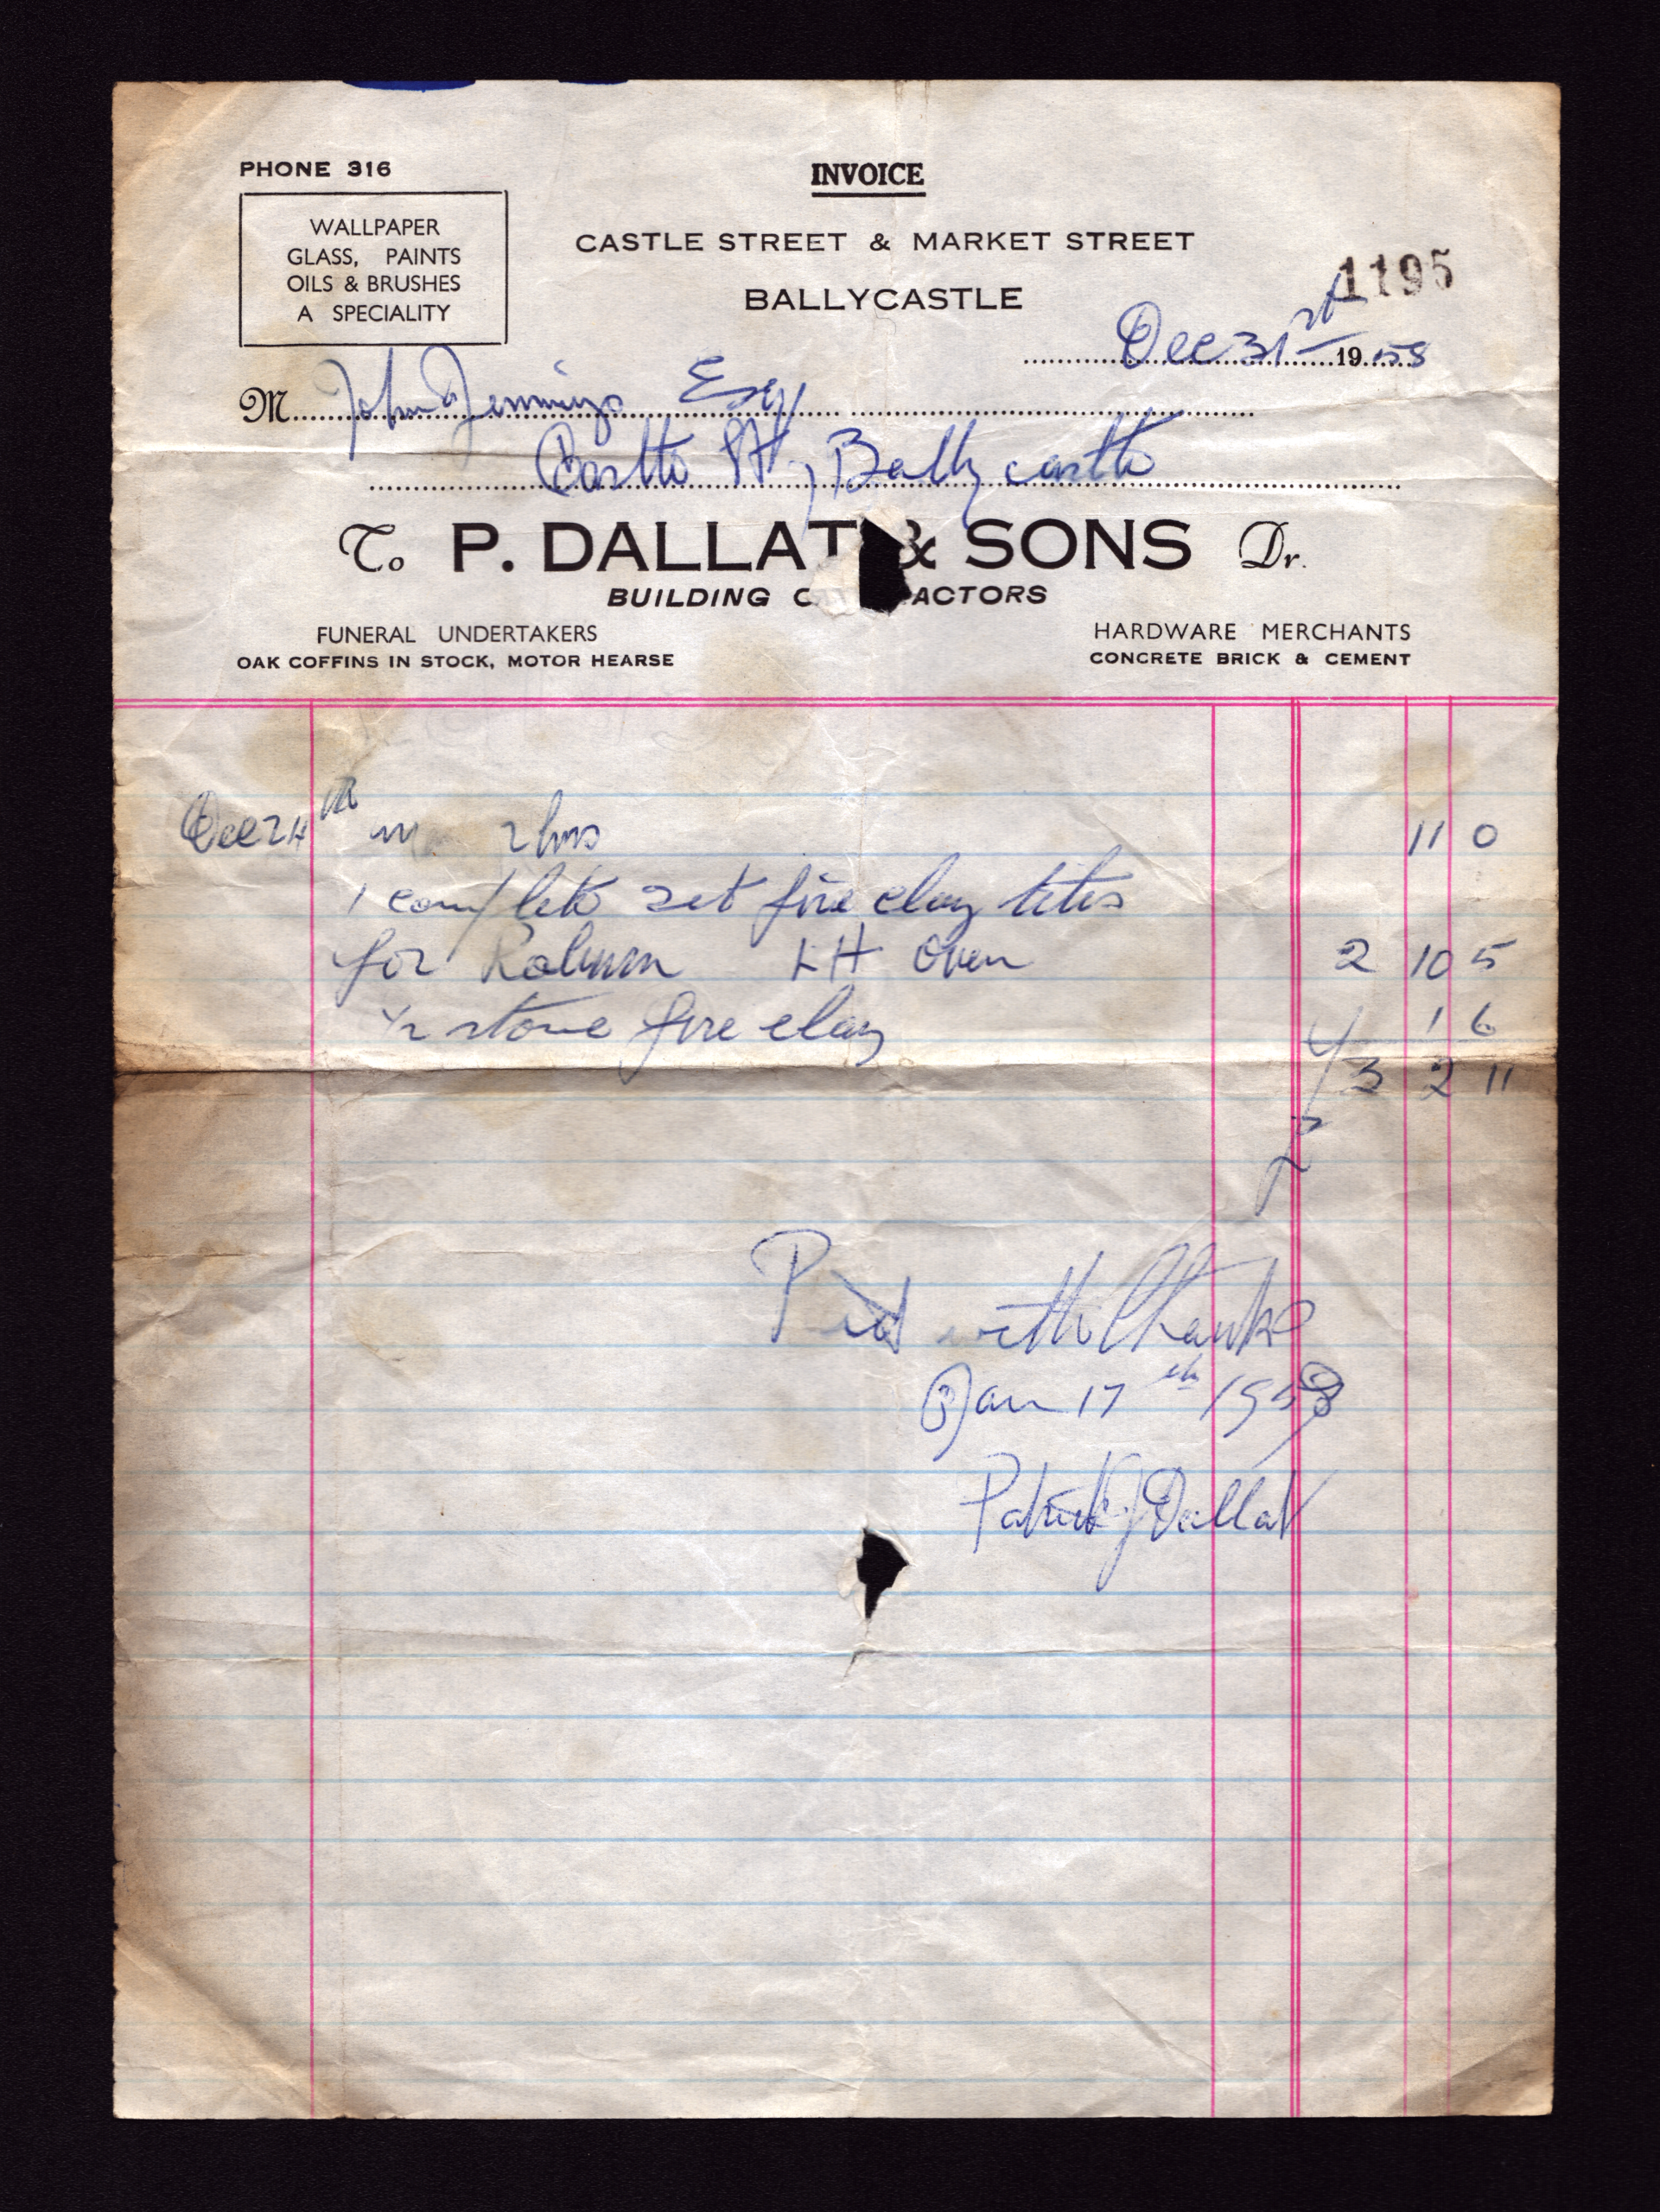 PHONE 316
INVOICE
WALLPAPER
GLASS, PAINTS
OILS & BRUSHES
A SPECIALITY
CASTLE STREET & MARKET STREET
BALLYCASTLE
1195
Dec 31st 1958
M John Jennings Esq
Castle St, Ballycastle
To P. DALLAT & SONS Dr.
BUILDING C ACTORS
FUNERAL UNDERTAKERS
OAK COFFINS IN STOCK, MOTOR HEARSE
HARDWARE MERCHANTS
CONCRETE BRICK & CEMENT
Dec 24th 2 hrs 11 0
1 complete set fire clay tiles
for LH Oven 2 10 5
1/2 stone fire clay 1 6
3 2 11
Paid with thanks
Jan 17th
Patrick J Dallat